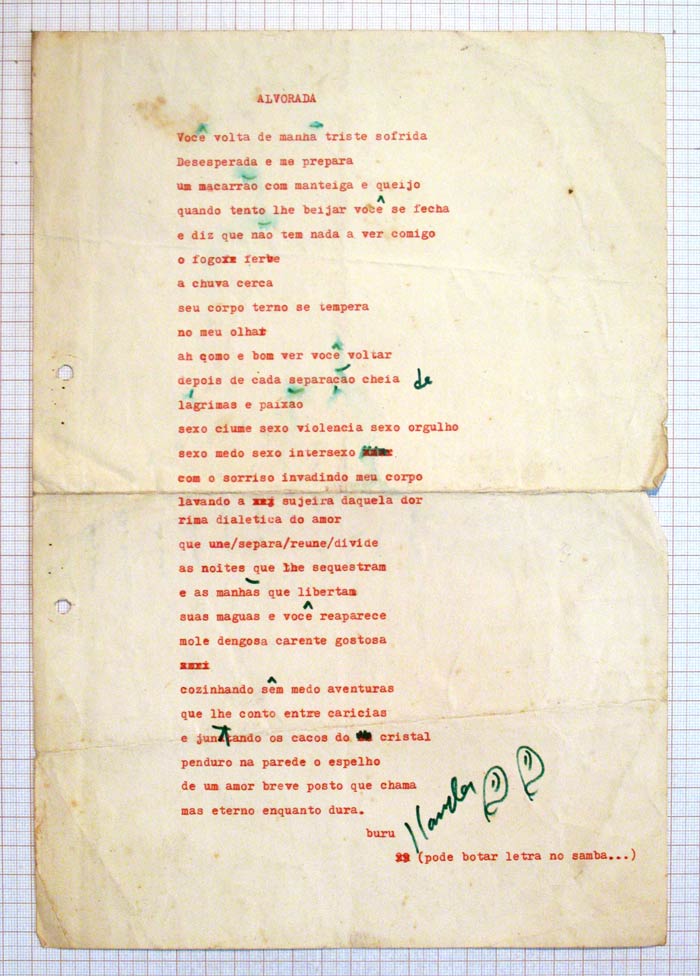 ALVORADA
Você volta de manhã triste sofrida
Desesperada e me prepara
um macarrão com manteiga e queijo
quando tento lhe beijar você se fecha
e diz que não tem nada a ver comigo
o fogo ferve
a chuva cerca
seu corpo terno se tempera
no meu olhar
ah como e bom ver você voltar
depois de cada separação cheia de
lágrimas e paixão
sexo ciume sexo violencia sexo orgulho
sexo medo sexo intersexo
com o sorriso invadindo meu corpo
lavando a sujeira daquela dor
rima dialetica do amor
que une/separa/reune/divide
as noites que lhe sequestram
e as manhãs que libertam
suas maguas e você reaparece
mole dengosa carente gostosa
cozinhando sêm medo aventuras
que lhe conto entre caricias
e juntando os cacos do cristal
penduro na parede o espelho
de um amor breve posto que chama
mas eterno enquanto dura.
buru
(pode botar letra no samba...)